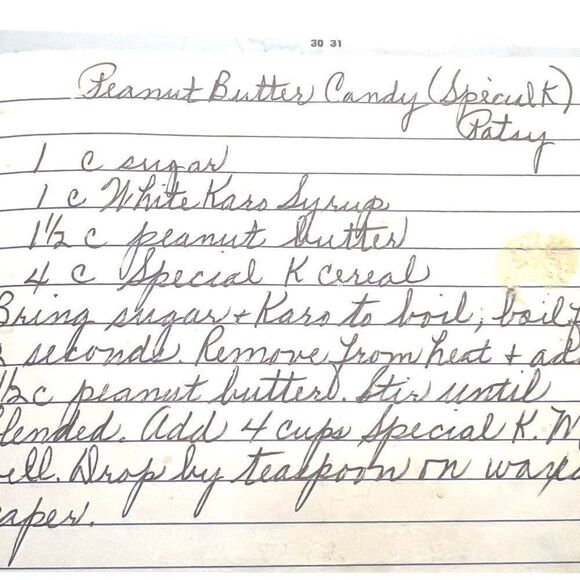 30 31
Peanut Butter Candy (Special K)
Patsy
1 c sugar
1 c White Karo Syrup
1½ c peanut butter
4 c Special K cereal
Bring sugar + Karo to boil, boil
seconds. Remove from heat + ad
½ c peanut butter. Stir until
lended. Add 4 cups Special K. M
ell. Drop by teaspoon on waxed
aper.